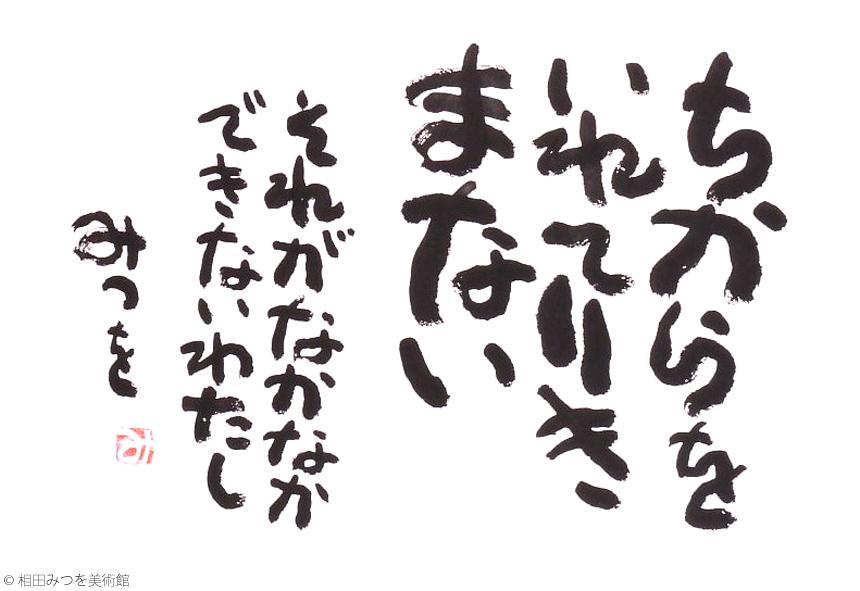 ちからを
いれてりき
まない
それがなかなか
できないわたし
みつを
み
© 相田みつを美術館